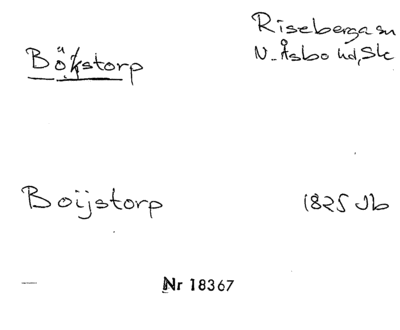 Riseberga sn
Bökstorp N. Åsbo hd, Sk
Boijstorp 1825 Jb
Nr 18367